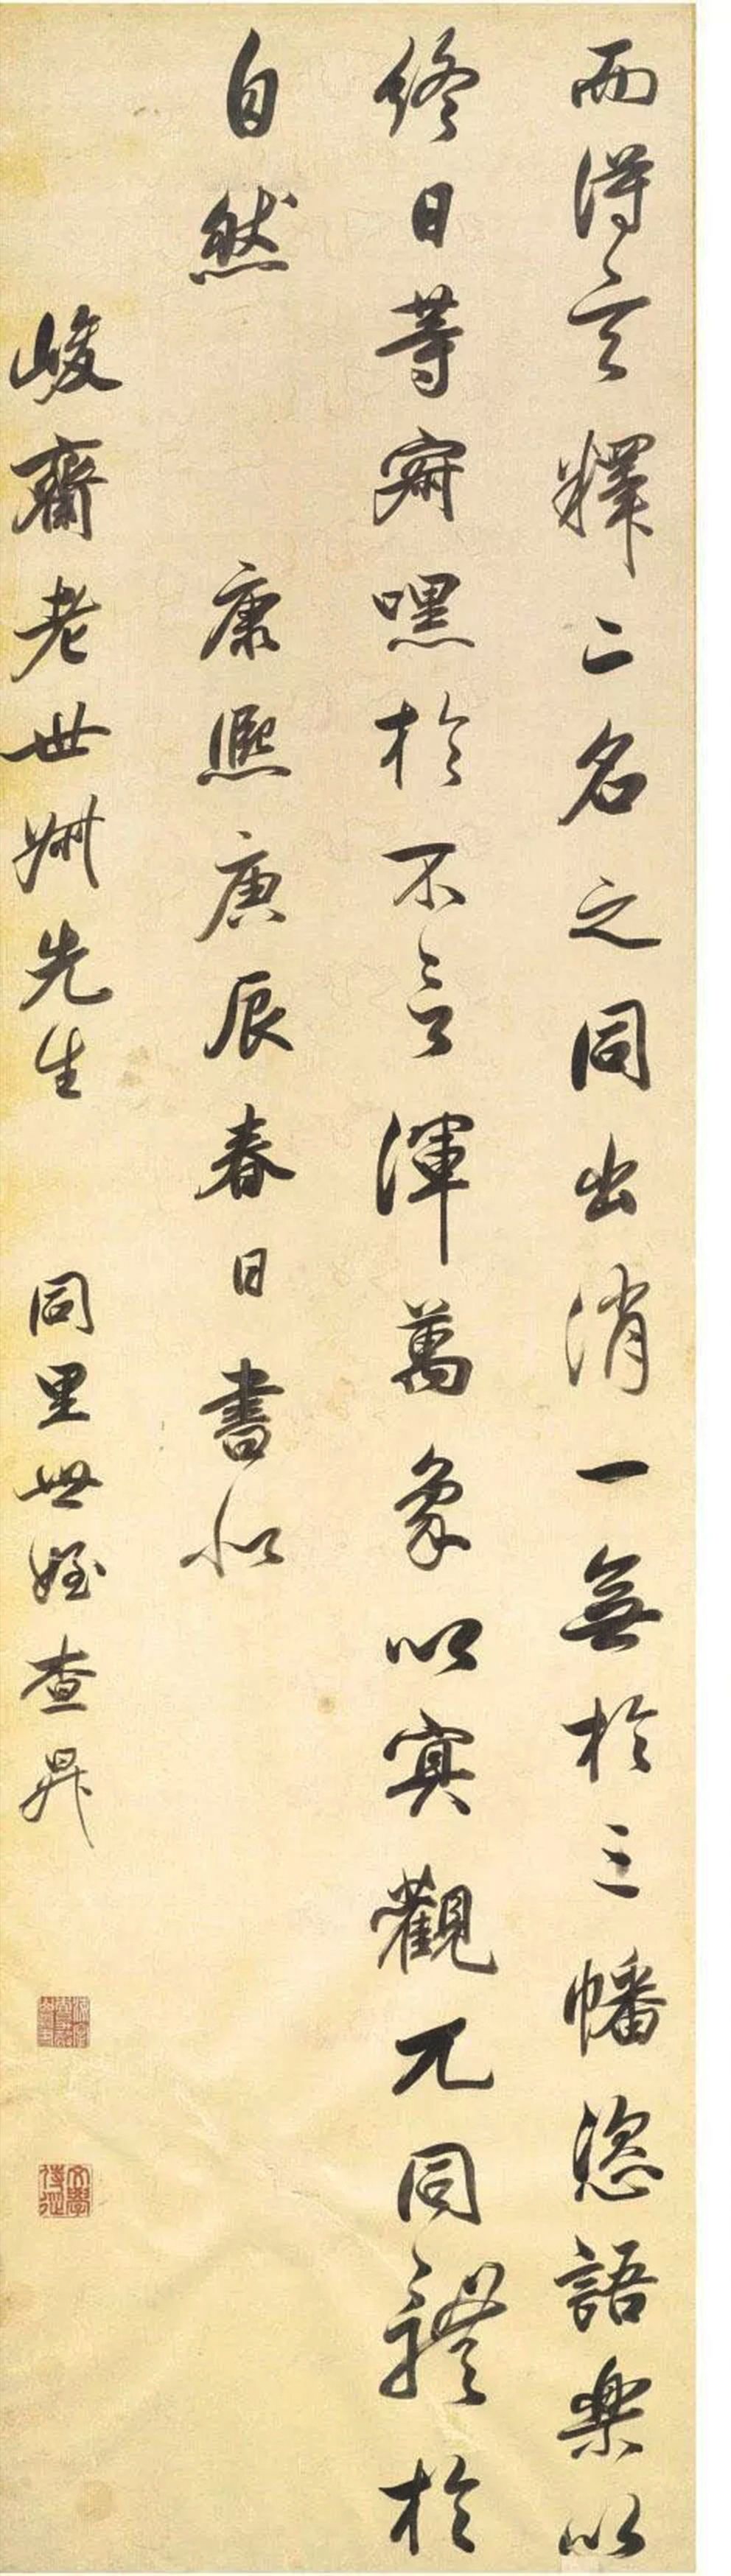 而得玄釋二名之同出消一無於三幡恣語樂以
終日等寂嘿於不言渾萬象以冥觀兀同體於
自然 康熙庚辰春日書似
峻齋老世叔先生 同里世姪查昇
文學侍從